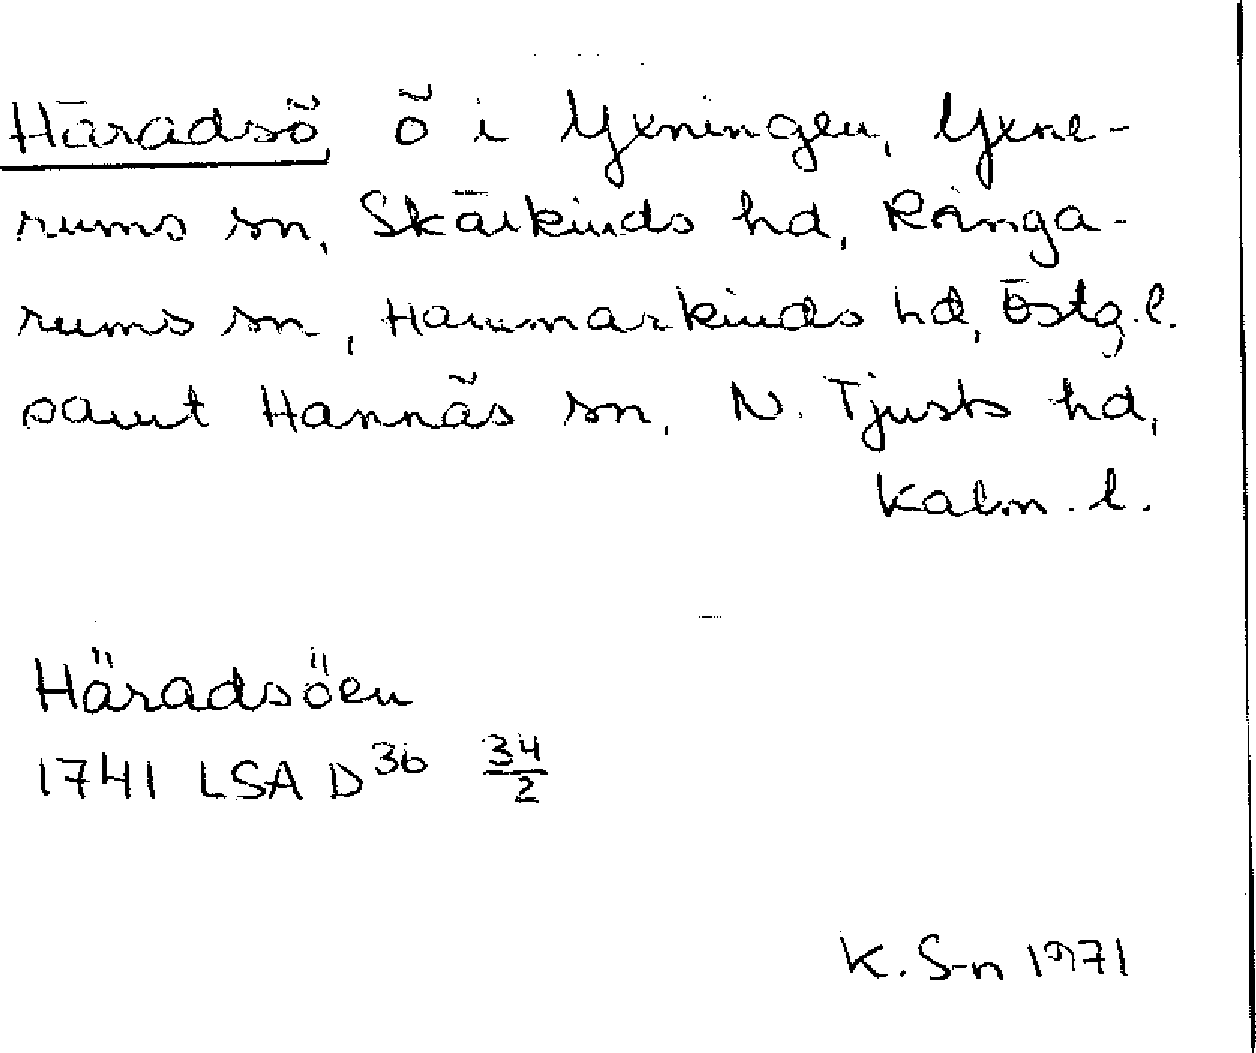 Häradsö, ö i Yxningen, Yxne-
rums sn, Skärkinds hd, Ringa-
rums sn, Hammarkinds hd, Östg.l.
samt Hannäs sn, N. Tjusts hd,
Kalm. l.
Häradsöen
1741 LSA D36 34/2
K. S-n 1971